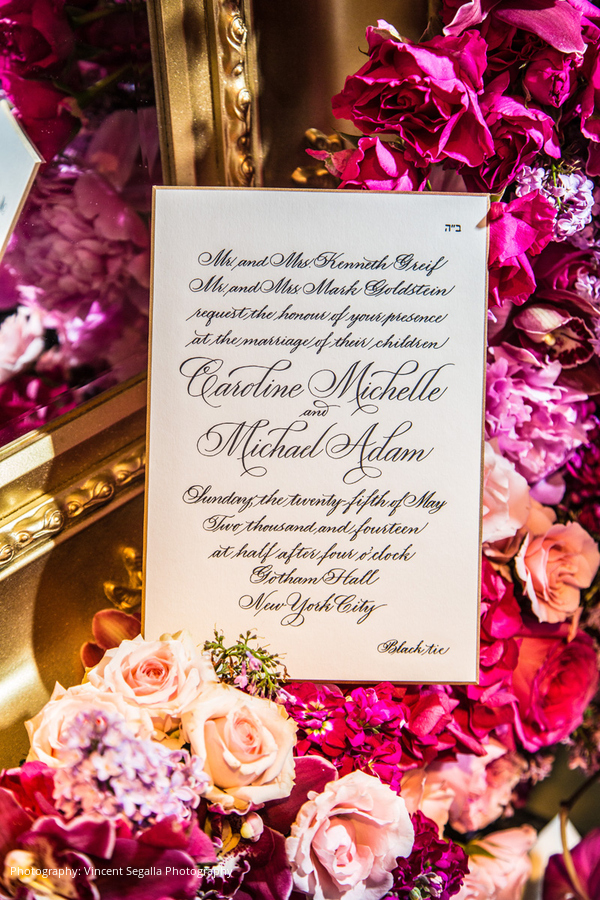 ב״ה
Mr. and Mrs. Kenneth Greif
Mr. and Mrs. Mark Goldstein
request the honour of your presence
at the marriage of their children
Caroline Michelle
and
Michael Adam
Sunday, the twenty-fifth of May
Two thousand and fourteen
at half after four o'clock
Gotham Hall
New York City
Black tie
Photography: Vincent Segalla Photography